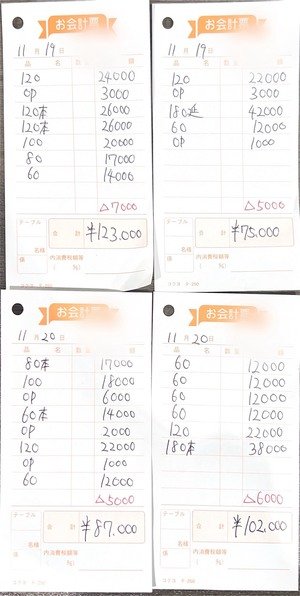 お会計票
11月19日
品 名 数量 額
120 24000
OP 3000
120本 26000
120本 26000
100 20000
80 17000
60 14000
△7000
テーブル 合計 ¥123.000
名様
係 内消費税額等
( %)
お会計票
11月19日
品 名 数量 額
120 22000
OP 3000
180延 42000
60 12000
OP 1000
△5000
テーブル 合計 ¥75.000
名様
係 内消費税額等
( %)
お会計票
11月20日
品 名 数量 額
80本 17000
100 18000
OP 6000
60本 14000
OP 2000
120 22000
OP 1000
60 12000
△5000
テーブル 合計 ¥87.000
名様
係 内消費税額等
( %)
お会計票
11月20日
品 名 数量 額
60 12000
60 12000
60 12000
60 12000
120 22000
180本 38000
△6000
テーブル 合計 ¥102.000
名様
係 内消費税額等
( %)